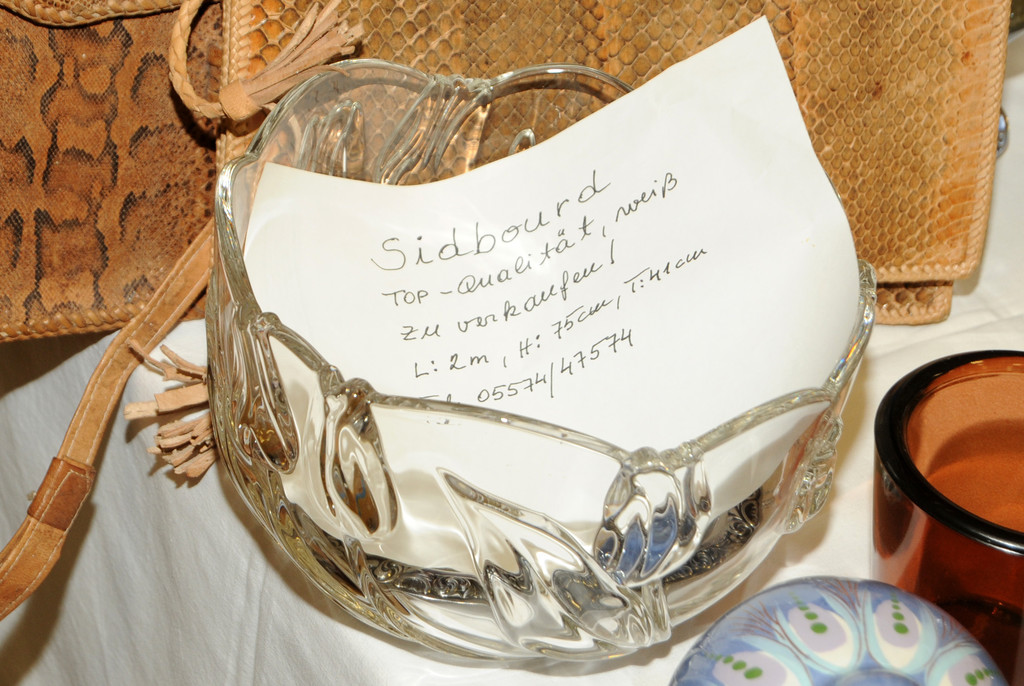 Sidbourd
TOP-Qualität, weiß
zu verkaufen!
L: 2m, H: 75cm, T: 41cm
05574/47574